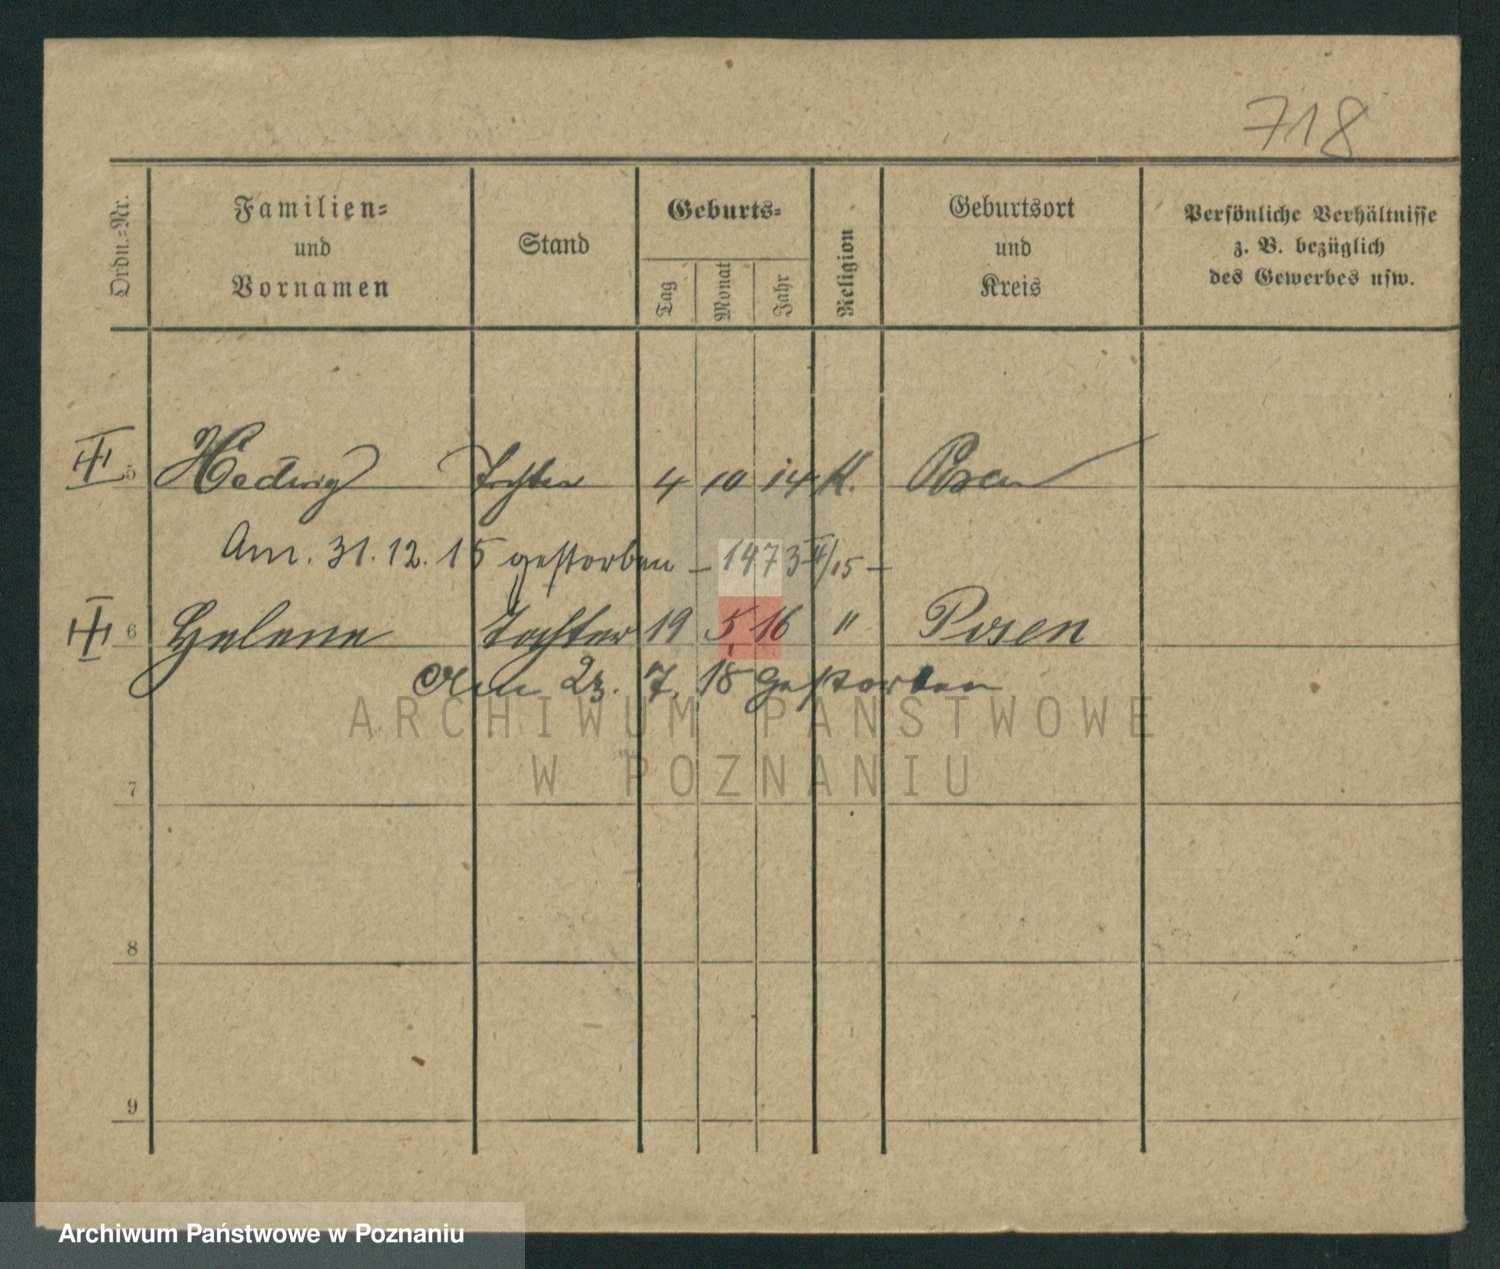 718
Ordn.=Nr.
Familien=
und
Vornamen
Stand
Geburts=
Tag
Monat
Jahr
Religion
Geburtsort
und
Kreis
Persönliche Verhältnisse
z. B. bezüglich
des Gewerbes usw.
5 Hedwig Tochter 4 10 14 K. Posen
Am. 31.12.15 gestorben – 1473 /15 –
6 Helene Tochter 19 5 16 " Posen
Am 23. 7. 18 gestorben
ARCHIWUM PAŃSTWOWE
W POZNANIU
7
8
9
Archiwum Państwowe w Poznaniu